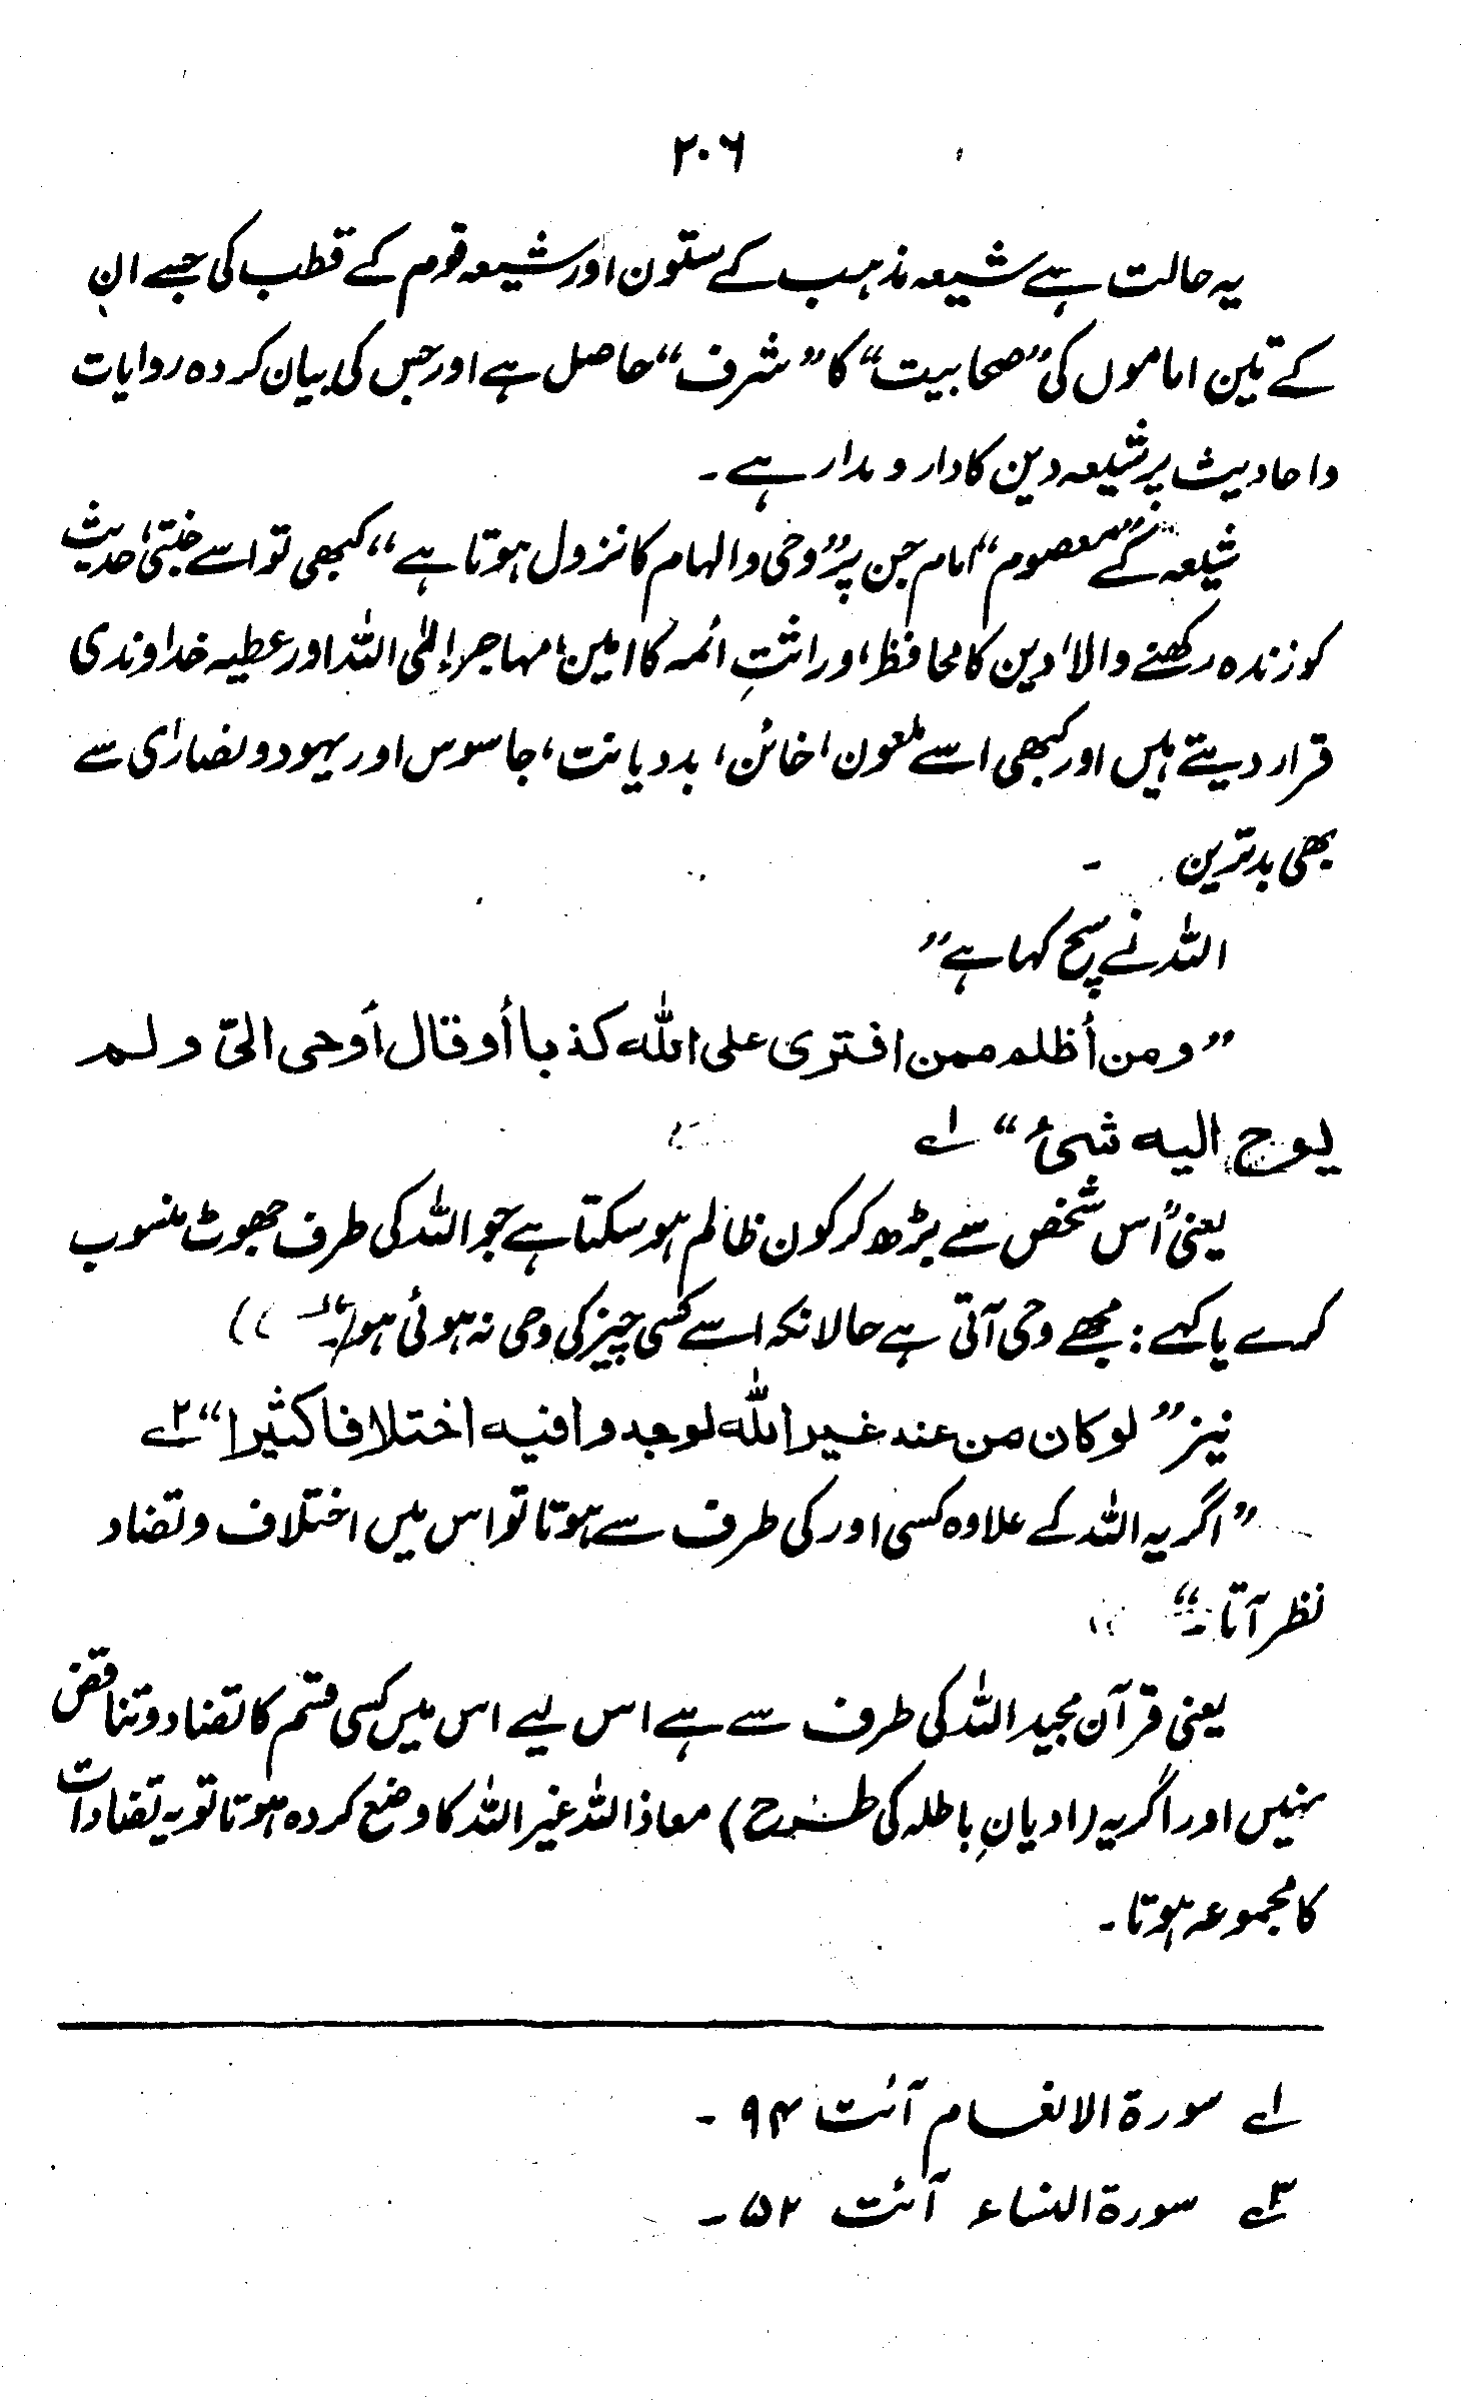 ۲۰۶
یہ حالت ہے شیعہ مذہب کے ستون اور شیعہ قوم کے قطب کی جسے ان
کے تین اماموں کی ”صحابیت“ کا ”شرف“ حاصل ہے اور جس کی بیان کردہ روایات
واحادیث پر شیعہ دین کا دار و مدار ہے۔
شیعہ کے ”معصوم“ امام جن پر ”وحی والہام کا نزول ہوتا ہے“ کبھی تو اسے جنتی، حدیث
کو زندہ رکھنے والا، دین کا محافظ، وراثتِ ائمہ کا امین، مہاجر إلی اللہ اور عطیہ خداوندی
قرار دیتے ہیں اور کبھی اسے ملعون، خائن، بددیانت، جاسوس اور یہود و نصاریٰ سے
بھی بدترین ۔
اللہ نے سچ کہا ہے”
”ومن أظلم ممن افتری علی اللہ کذبا أو قال أوحی الیّ و لم
یوح الیہ شیٔ“ ۱ے
یعنی ”اُس شخص سے بڑھ کر کون ظالم ہو سکتا ہے جو اللہ کی طرف جھوٹ منسوب
کرے یا کہے : مجھے وحی آتی ہے حالانکہ اسے کسی چیز کی وحی نہ ہوئی ہو۔“
نیز ”لو کان من عند غیر اللہ لوجدوا فیہ اختلافا کثیرا“ ۲ے
”اگر یہ اللہ کے علاوہ کسی اور کی طرف سے ہوتا تو اس میں اختلاف و تضاد
نظر آتا۔“
یعنی قرآن مجید اللہ کی طرف سے ہے اس لیے اس میں کسی قسم کا تضاد و تناقض
نہیں اور اگر یہ (ادیانِ باطلہ کی طرح) معاذ اللہ غیر اللہ کا وضع کردہ ہوتا تو یہ تضادات
کا مجموعہ ہوتا۔
۱ے سورۃ الانعام آئت ۹۴ ۔
۲ے سورۃ النساء آئت ۵۲ ۔